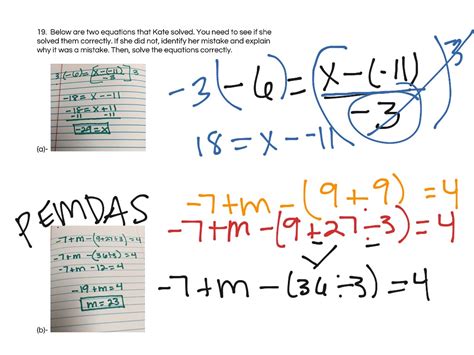 19. Below are two equations that Kate solved. You need to see if she
solved them correctly. If she did not, identify her mistake and explain
why it was a mistake. Then, solve the equations correctly.
3(-6)=[x-(-11)/-3]3
-18=x--11
-18=x+11
-11 -11
-29=x
(a)-
-3(-6)=(x-(-11)/-3)-3
18=x--11
PEMDAS
-7+m-(9+27÷3)=4
-7+m-(36÷3)=4
-7+m-12=4
-19+m=4
m=23
(b)-
-7+m-(9+9)=4
-7+m-(9+27÷3)=4
-7+m-(36÷3)=4